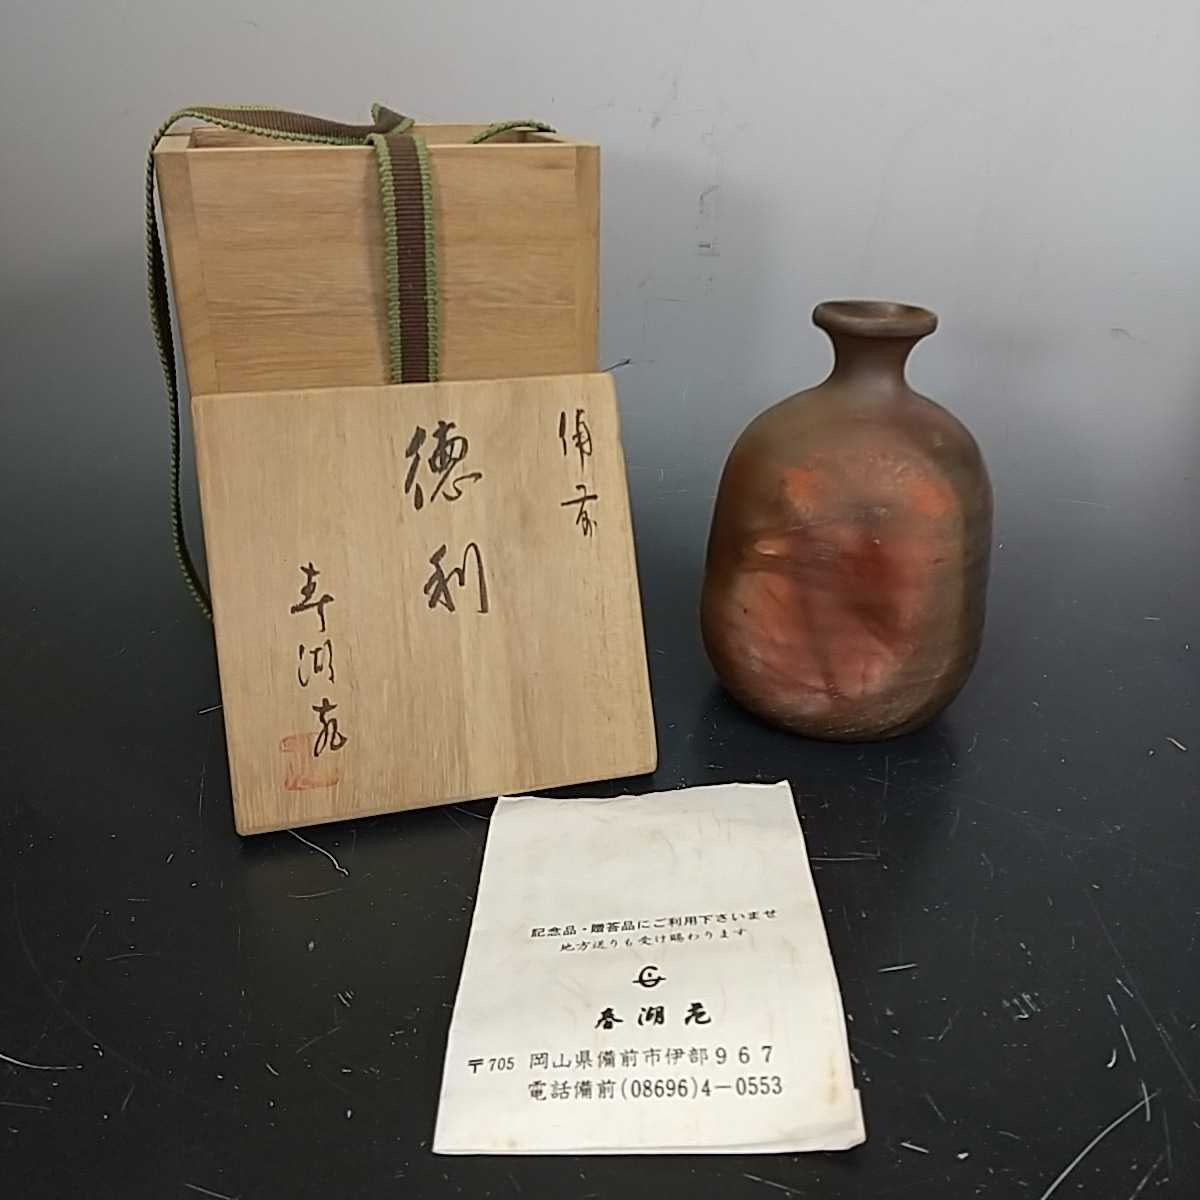 備前
徳利
春湖苑
記念品・贈答品にご利用下さいませ
地方送りも受け賜わります
春湖苑
〒705 岡山県備前市伊部967
電話備前(08696)4-0553